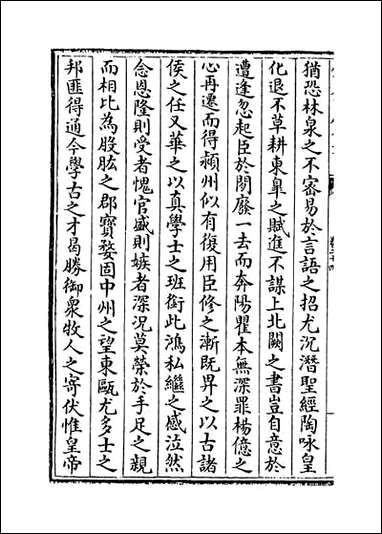 猶恐林泉之不審易於言語之招尤沉潛聖經陶咏皇
化退不草耕東臯之賦進不謀上北闕之書豈自意於
遭逢忽起臣於閑廢一去而奔陽瞿本無深罪楊億之
心再還而得潁州似有復用臣修之漸既畀之以古諸
侯之任又華之以真學士之班銜此鴻私繼之感泣然
念恩隆則受者愧官盛則嫉者深况莫榮於手足之親
而相比為股肱之郡寳婺固中州之望東甌尤多士之
邦匪得通今學古之才曷勝御衆牧人之寄伏惟皇帝